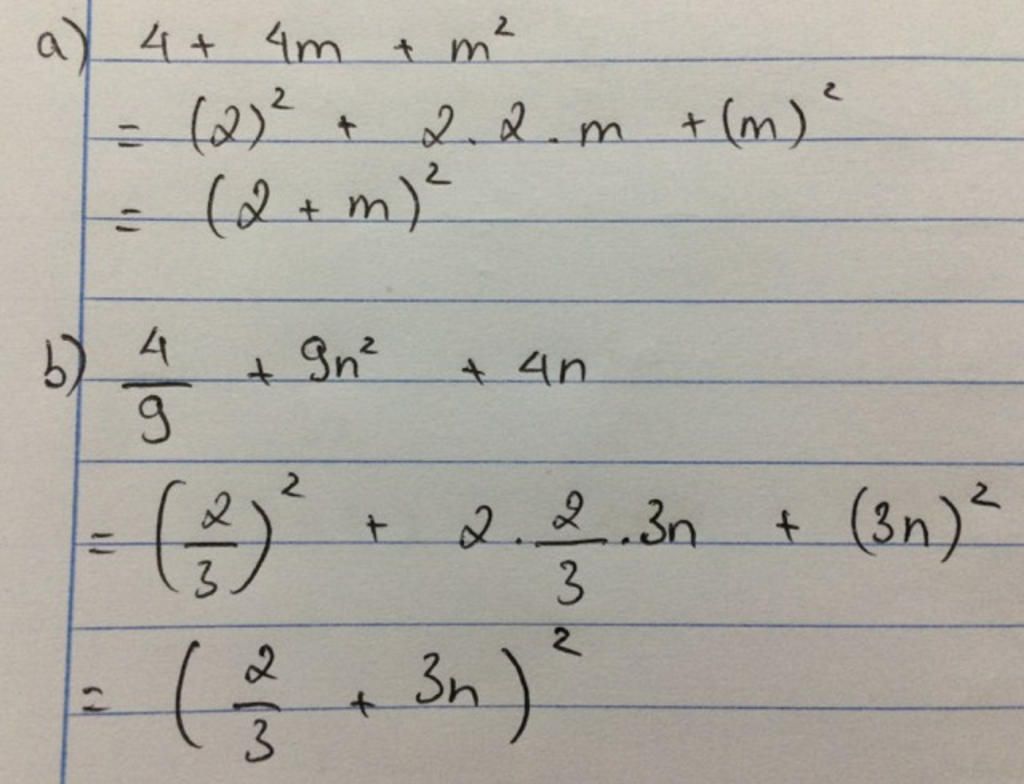 a) 4 + 4m + m²
= (2)² + 2 . 2 . m + (m)²
= (2 + m)²
b) 4/9 + 9n² + 4n
= (2/3)² + 2 . 2/3 . 3n + (3n)²
= (2/3 + 3n)²